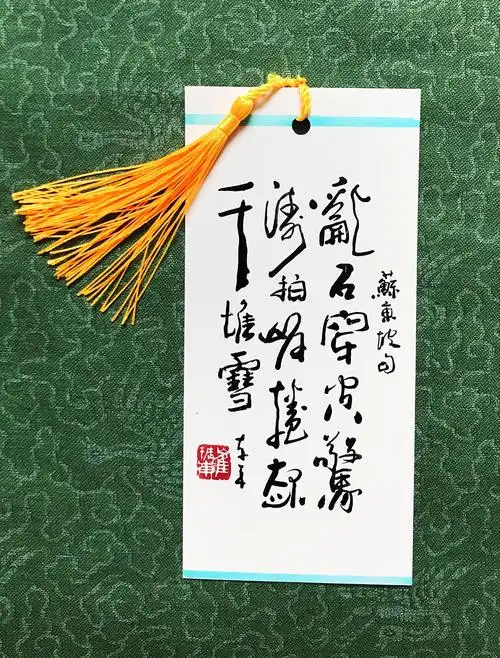 蘇東坡句
亂石穿空驚
濤拍岸捲起
千堆雪